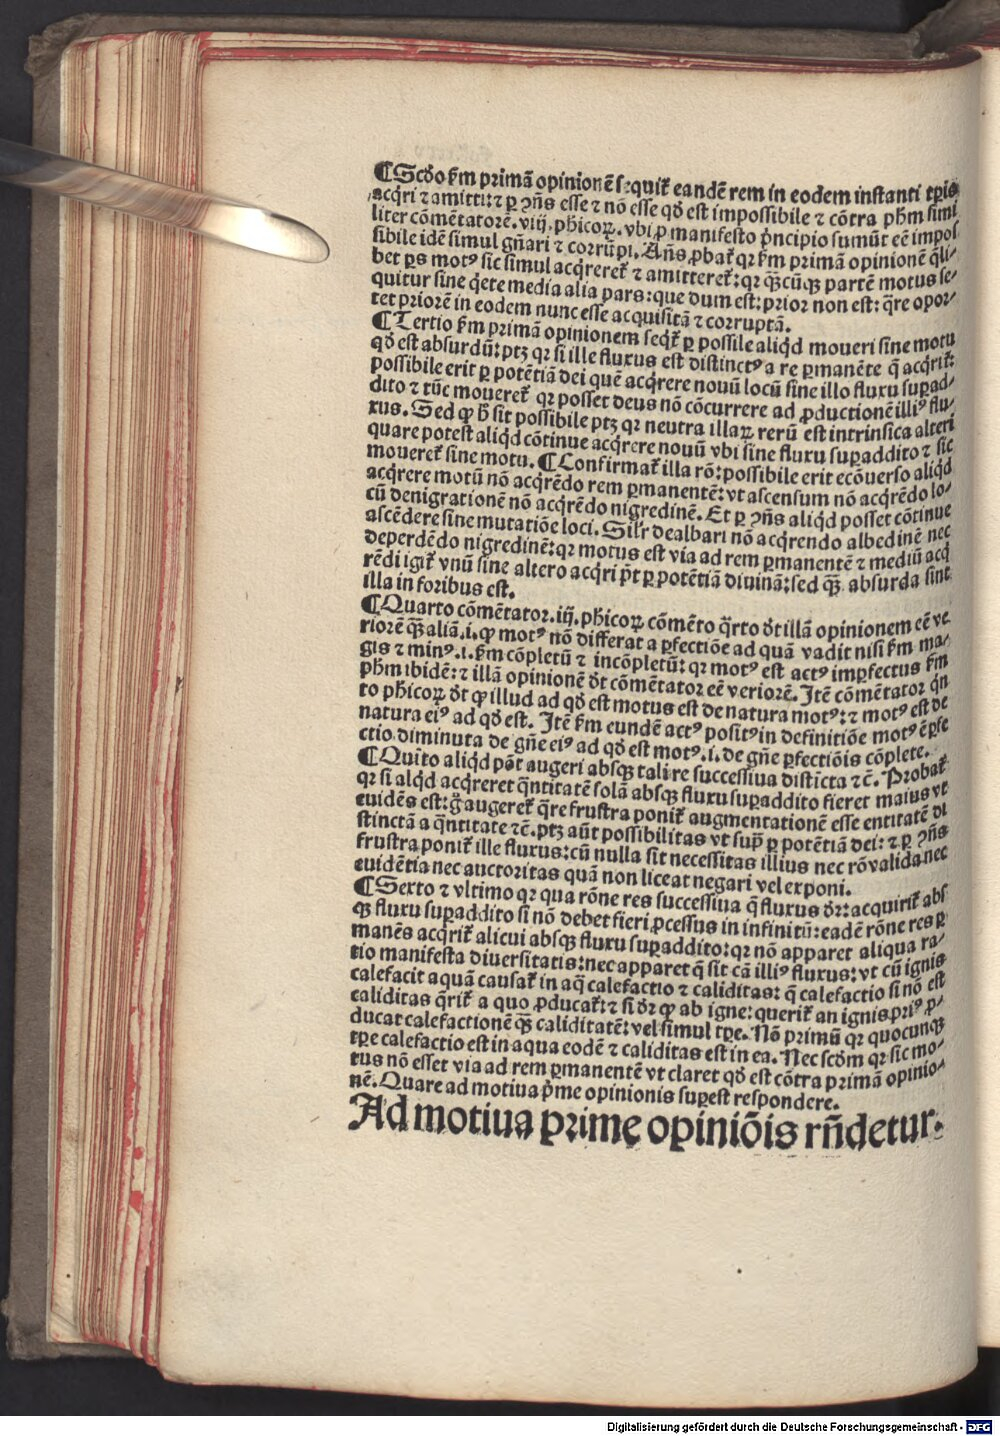 ¶Scðo ẜm primã opinionẽ sequit᷑ eandẽ rem in eodem instanti tp̃is
acq̇ri ⁊ amitti: ⁊ ꝑ ꝯñs esse ⁊ nõ esse qð est impossibile ⁊ cõtra ph̃m simi
liter cõmẽtatorẽ. viij. ph̃icoꝝ. vbi ꝓ manifesto p̃ncipio sumũt eẽ impos
sibile idẽ simul gñari ⁊ corrũpi. Añs ꝓbat᷑ qꝛ ẜm primã opinionẽ q̃li⸗
bet ps motꝰ sic simul acq̇reret᷑ ⁊ amitteret᷑: qꝛ qñcũqꝫ partẽ motus se⸗
quitur sine q̇ete media alia pars: que dum est: prior non est: q̃re opor⸗
tet priorẽ in eodem nunc esse acquisitã ⁊ corruptã.
¶Tertio ẜm primã opinionem seqt᷑ ꝑ possile aliq̇d moueri sine motu
qð est absurdũ: ptꝫ qꝛ si ille fluxus est distinctꝰ a re ꝑmanẽte q̃ acq̇rit᷑:
possibile erit ꝑ potẽtiã dei quẽ acq̇rere nouũ locũ sine illo fluxu suꝑad⸗
dito ⁊ tũc moueret᷑ qꝛ posset deus nõ cõcurrere ad ꝓductionẽ illiꝰ flu⸗
xus. Sed ꝙ h̃ sit possibile ptꝫ qꝛ neutra illaꝝ rerũ est intrinsica alteri
quare potest aliq̇d cõtinue acq̇rere nouũ vbi sine fluxu suꝑaddito ⁊ sic
moueret᷑ sine motu. ¶Confirmat᷑ illa rõ: possibile erit ecõuerso aliq̇d
acq̇rere motũ nõ acq̇rẽdo rem ꝑmanentẽ: vt ascensum nõ acq̇rẽdo lo⸗
cũ denigrationẽ nõ acq̇rẽdo nigredinẽ. Et ꝑ ꝯñs aliq̇d posset cõtinue
ascẽdere sine mutatiõe loci. Silr̃ dealbari nõ acq̇rendo albedinẽ nec
deperdẽdo nigredinẽ: qꝛ motus est via ad rem ꝑmanentẽ ⁊ mediũ acq̇
rẽdi igit᷑ vnũ sine altero acq̇ri p̃t ꝑ potẽtiã diuinã: sed qꝫ absurda sint
illa in foribus est.
¶Quarto cõmẽtator. iij. ph̃icoꝝ cõmẽto q̃rto ðt illã opinionem eẽ ve
riorẽ qꝫ aliã. i. ꝙ motꝰ nõ differat a ꝑfectiõe ad quã vadit nisi ẜm ma⸗
gis ⁊ minꝰ. i. ẜm cõpletũ ⁊ incõpletũ: qꝛ motꝰ est actꝰ imꝑfectus ẜm
ph̃m ibidẽ: ⁊ illã opinionẽ ðt cõmẽtator eẽ veriorẽ. Itẽ cõmẽtator q̇n
to ph̃icoꝝ ðt ꝙ illud ad qð est motus est de natura motꝰ: ⁊ motꝰ est de
natura eiꝰ ad qð est. Itẽ ẜm eundẽ actꝰ positꝰ in definitiõe motꝰ ẽ ꝑfe
ctio diminuta de gñe eiꝰ ad qð est motꝰ. i. de gñe ꝑfectiõis cõplete.
¶Quĩto aliq̇d põt augeri absqꝫ tali re successiua distĩcta ⁊c̃. Probat᷑
qꝛ si alq̇d acq̇reret q̃ntitatẽ solã absqꝫ fluxu suꝑaddito fieret maius vt
euidẽs est: g̊ augeret᷑ q̃re frustra ponit᷑ augmentationẽ esse entitatẽ di
stinctã a q̃ntitate ⁊c̃. ptꝫ aũt possibilitas vt sup̃ ꝑ potẽtiã dei: ⁊ ꝑ ꝯñs
frustra ponit᷑ ille fluxus: cũ nulla sit necessitas illius nec rõ valida nec
euidẽtia nec auctoritas quã non liceat negari vel exponi.
¶Sexto ⁊ vltimo qꝛ qua rõne res successiua q̃ fluxus ðꝛ: acquirit᷑ abs
qꝫ fluxu suꝑaddito si nõ debet fieri ꝓcessus in infinitũ: eadẽ rõne res ꝑ
manẽs acq̇rit᷑ alicui absqꝫ fluxu suꝑaddito: qꝛ nõ apparet aliqua ra⸗
tio manifesta diuersitatis: nec apparet q̃ sit cã illiꝰ fluxus: vt cũ ignis
calefacit aquã causat᷑ in aq̃ calefactio ⁊ caliditas: q̃ calefactio si nõ est
caliditas q̃rit᷑ a quo ꝓducat᷑: ⁊ si ðꝛ ꝙ ab igne: querit᷑ an ignis priꝰ ꝓ⸗
ducat calefactionẽ qꝫ caliditatẽ: vel simul tꝑe. Nõ primũ qꝛ quocunqꝫ
tꝑe calefactio est in aqua eodẽ ⁊ caliditas est in ea. Nec scðm qꝛ sic mo⸗
tus nõ esset via ad rem ꝑmanentẽ vt claret qð est cõtra primã opinio⸗
nẽ. Quare ad motiua p̃me opinionis suꝑest respondere.
Ad motiua prime opiniõis rñdetur.
Digitalisierung gefördert durch die Deutsche Forschungsgemeinschaft - DFG